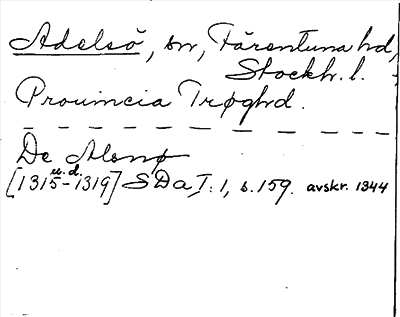 Adelsö, sn, Färentuna hd,
Stockh. l.
Prouincia Trøghd.
De Alsnø
u.d.
[1315-1319] SDa I:1, s.159. avskr. 1344